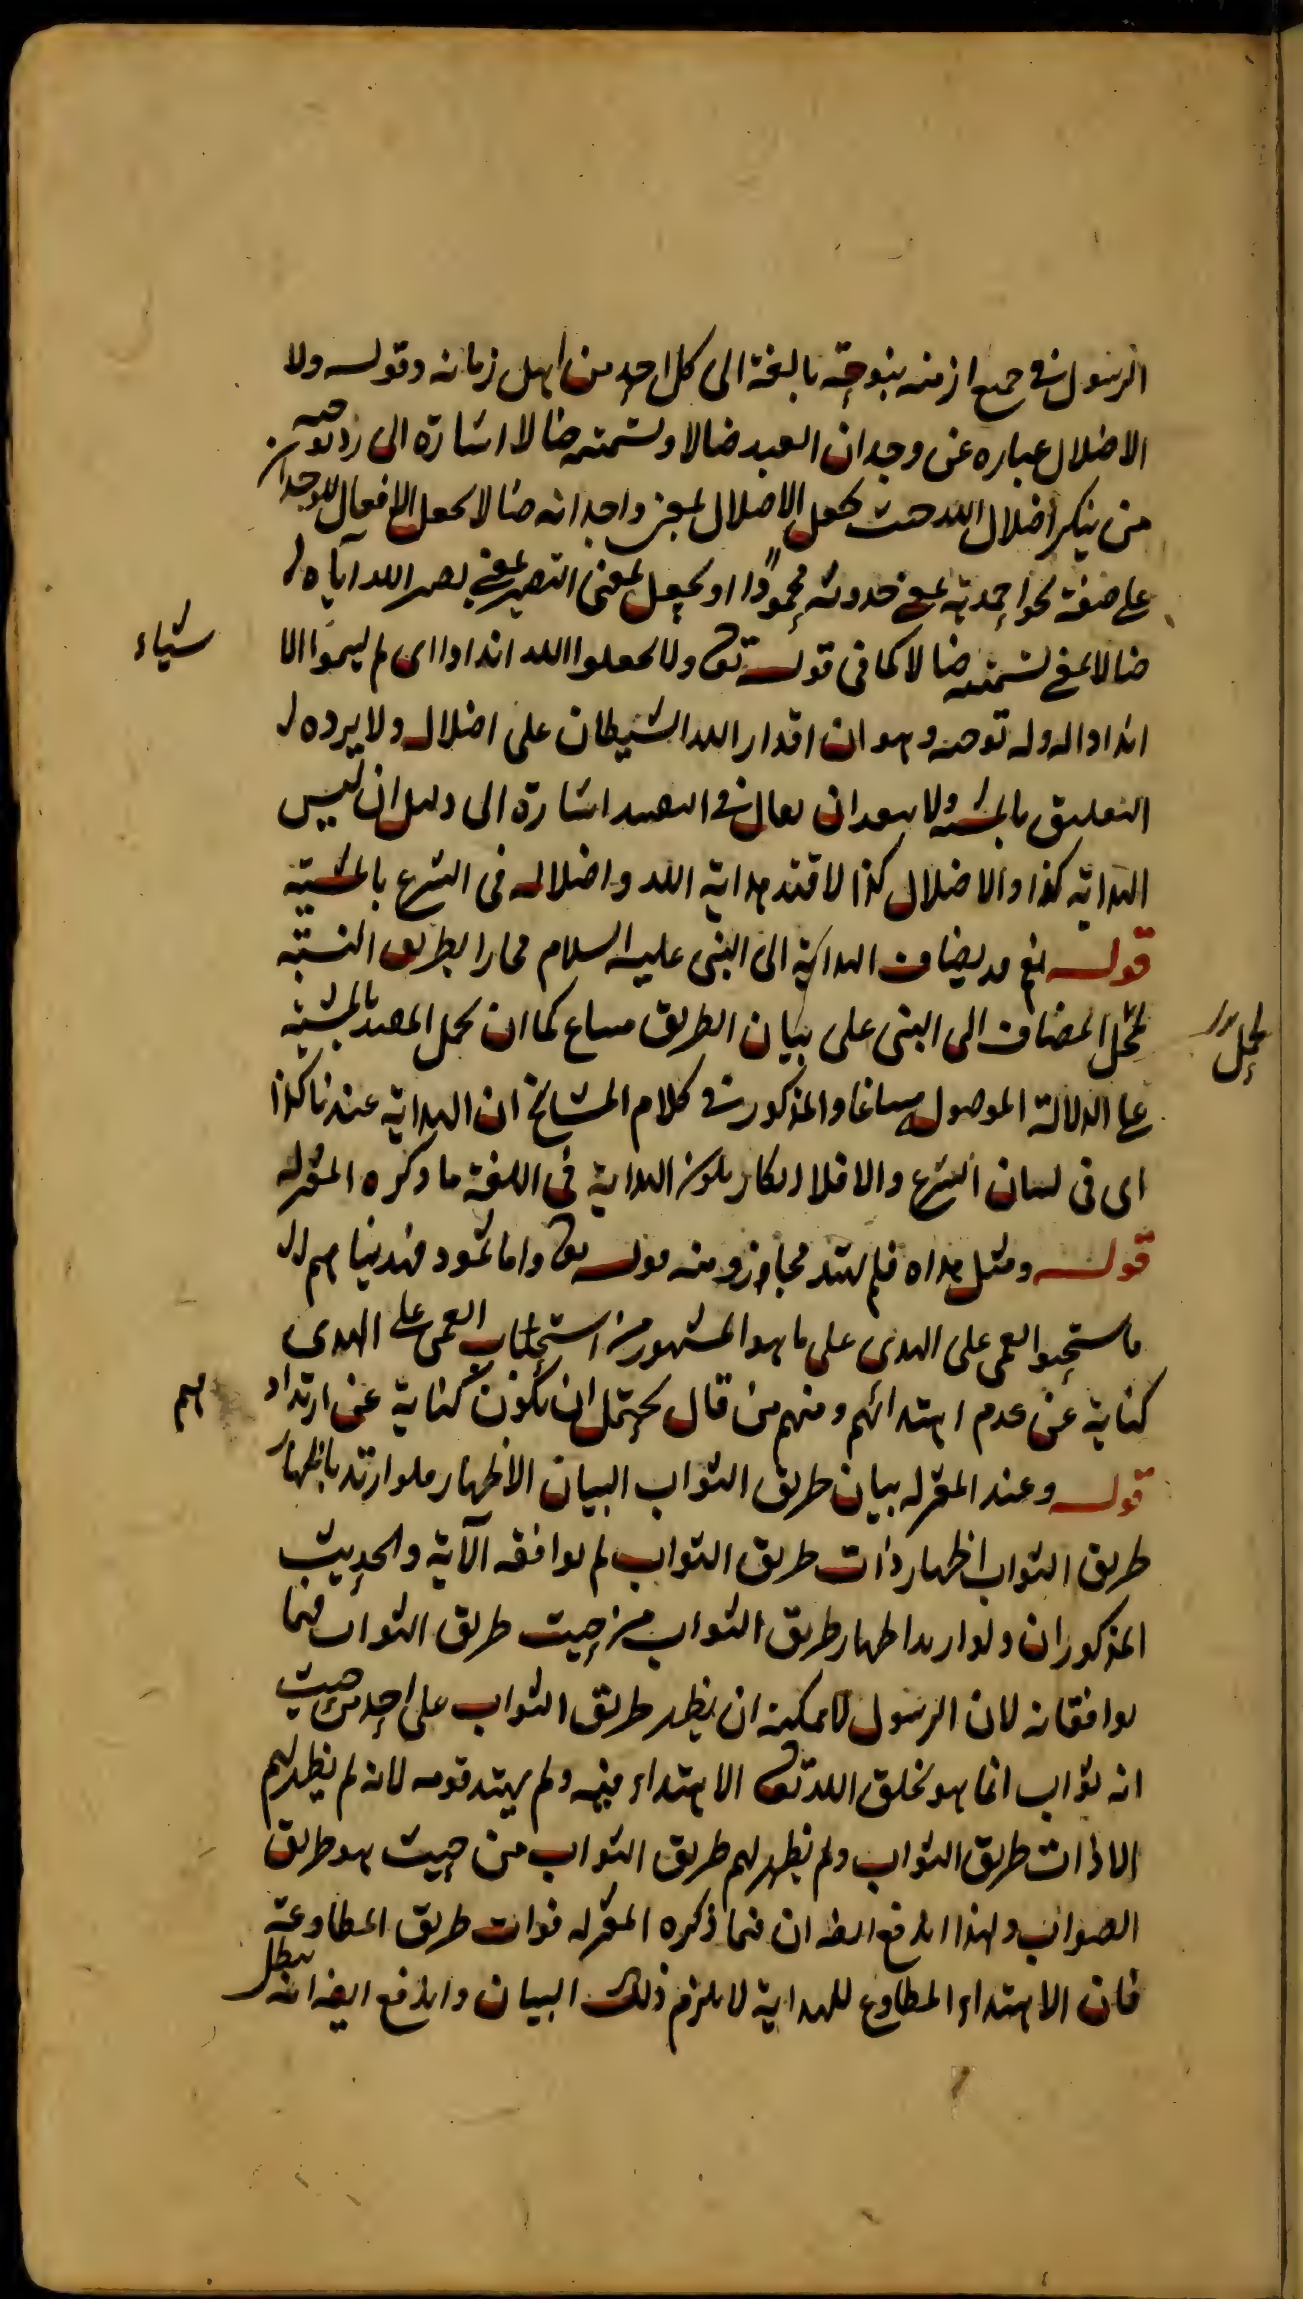 الرسول في جميع ازمنه بنبوته بالغة الى كل احد من اهل زمانه وقوله ولا
الاضلال عبارة عن وجدان العبد ضالا وتسميته ضالا اشارة الى رد توجيه
من ينكر اضلال الله حيث يجعل الاضلال بمعنى واجدانه ضالا لجعل الافعال للوجدان
على صفة نحو احمدته بمعنى وجدته محمودا او يجعل بمعنى التصيير بمعنى يصير الله اياه
ضالا بمعنى تسميته ضالا كما في قوله تع ولا تجعلوا لله اندادا اى لم ليسموا الا
شياء
اندادا له وله توجيه وهو ان اقدار الله الشيطان على اضلاله ولا يرده
التعليق بالمشية ولا يبعد ان يقال في التقييد اشارة الى دليل ان ليس
الهداية كذا والاضلال كذا لا قتد هداية الله واضلاله في الشرع بالمشية
قوله نعم قد يضاف الهداية الى النبى عليه السلام مجازا بطريق النسبة
لحمل المضاف الى النبى على بيان الطريق مساغ كما ان لحمل المقيد بالمشية
لحمل
على الدلالة الموصول مساغا والمذكور في كلام المشايخ ان الهداية عندنا كذا
اى في لسان الشرع والا فلا انكار لكون الهداية في اللغة ما ذكره المعتزله
قوله ومثل هداه فلم يهتد مجاز ومنه قوله تع واما ثمود فهديناهم
فاستحبوا العمى على الهدى على ما هو المشهور من استحباب العمى على الهدى
كناية عن عدم اهتدائهم ومنهم من قال يحتمل ان يكون كناية عن ارتداد
هم
قوله وعند المعتزله بيان طريق الثواب البيان الاظهار فلو اريد باظهار
طريق الثواب اظهار ذات طريق الثواب لم يوافقه الآية والحديث
المذكوران ولو اريد اظهار طريق الثواب من حيث طريق الثواب فهما
يوافقانه لان الرسول لا يمكنه ان يظهر طريق الثواب على احد من حيث
انه ثواب انما هو بخلق الله تع الاهتداء فيه ولم يهتد قومه لانه لم يظهر لهم
الا ذات طريق الثواب ولم يظهر لهم طريق الثواب من حيث هو طريق
الصواب ولهذا اندفع ايضا ان فيما ذكره المعتزله فوات طريق المطاوعة
فان الاهتداء المطاوع للهداية لا يلزم ذلك البيان واندفع ايضا انه يبطل